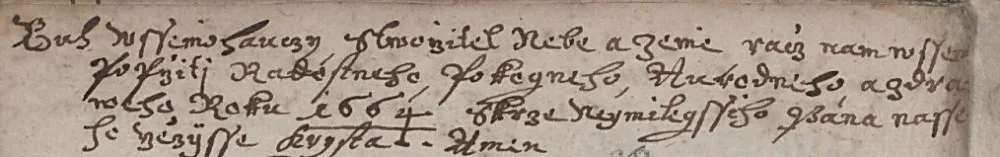 Buh wssemohauczy Stworzitel Nebe a zeme racz nam wssem
Popřziti Radostneho, Pokogneho, Aurodneho a zdra
weho Roku 1664 Skrze Neymilegssiho Pána nasse
ho Gezisse Krysta. Amen